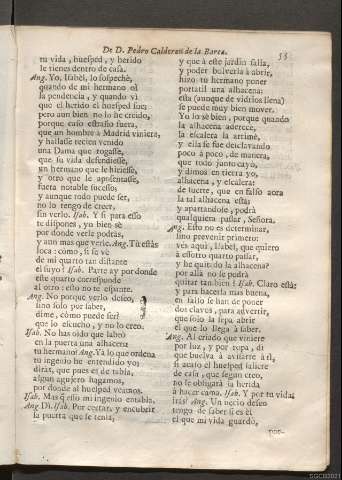 De D. Pedro Calderon de la Barca.
tu vida, huesped, y herido
le tienes dentro de casa.
Ang. Yo, Isabèl, lo sospechè,
quando de mi hermano oì
la pendencia, y quando vì
que el herido el huesped fue;
pero aun bien no lo he creido,
porque caso estraño fuera,
que un hombre à Madrid viniera,
y hallasse recien venido
una Dama que rogasse,
que su vida defendiesse,
un hermano que le hiriesse,
y otro que le aposentasse,
fuera notable sucesso;
y aunque todo puede ser,
no lo tengo de creer,
sin verlo. Isab. Y si para esso
te dispones, yo bien sè
por donde verle podràs,
y aun mas que verle. Ang. Tù estàs
loca: còmo, si se vè
de mi quarto tan distante
el suyo? Isab. Parte ay por donde
este quarto corresponde
al otro: esto no te espante.
Ang. No porque verlo deseo,
sino solo por saber,
dime, còmo puede ser?
que lo escucho, y no lo creo.
Isab. No has oìdo que labrò
en la puerta una alhacena
tu hermano? Ang. Yà lo que ordena
tu ingenio he entendido yo;
diràs, que pues es de tabla,
algun agujero hagamos,
por donde al huesped veamos.
Isab. Mas q̃ esso mi ingenio entabla.
Ang. Dì. Isab. Por cerrar, y encubrir
la puerta que se tenia,
y que à este jardin salia,
y poder bolverla à abrir,
hizo tu hermano poner
portatil una alhacena:
esta (aunque de vidrios llena)
se puede muy bien mover.
Yo lo sè bien, porque quando
la alhacena aderecè,
la escalera la arrimè,
y ella se fue desclavando
poco à poco, de manera,
que todo junto cayò,
y dimos en tierra yo,
alhacena, y escalera:
de suerte, que en falso aora
la tal alhacena està;
y apartandose, podrà
qualquiera passar, Señora.
Ang. Esto no es determinar,
sino prevenir primero:
ves aquì, Isabèl, que quiero
à essotro quarto passar,
y he quitado la alhacena?
por allà no se podrà
quitar tambien? Isab. Claro està;
y para hacerla mas buena,
en falso se han de poner
dos clavos, para advertir,
que solo la sepa abrir
el que lo llega à saber.
Ang. Al criado que viniere
por luz, y por ropa, dì
que buelva à avisarte à tì,
si acaso el huesped saliere
de casa, que segun creo,
no se obligarà la herida
à hacer cama. Isab. Y por tu vida,
iràs? Ang. Un necio deseo
tengo de saber si es èl
el que mi vida guardò,
por-
SGCB2021